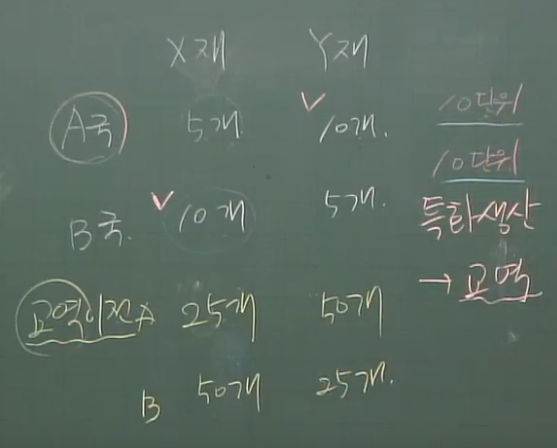 X재 Y재
A국 5개 10개. 10단위
10단위
B국. 10개 5개. 특화생산
→ 교역
교역이전 A 25개 50개
B 50개 25개.